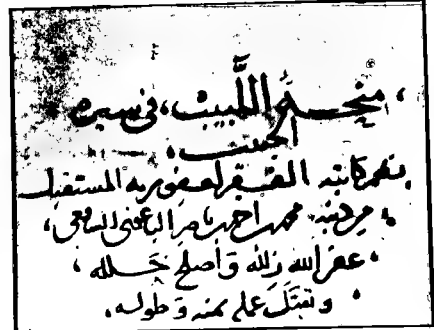 منحة اللَّبيب، فى سيرة
الحبيب،
نظم كاتبه الفقير لعفو ربه المستقيل
من ذنبه، محمد احمد ناصر الباعونى الشافعى،
غفر الله زلله وَأصلح خَلله،
وتقبَّل عمله بمنه وَطوله.